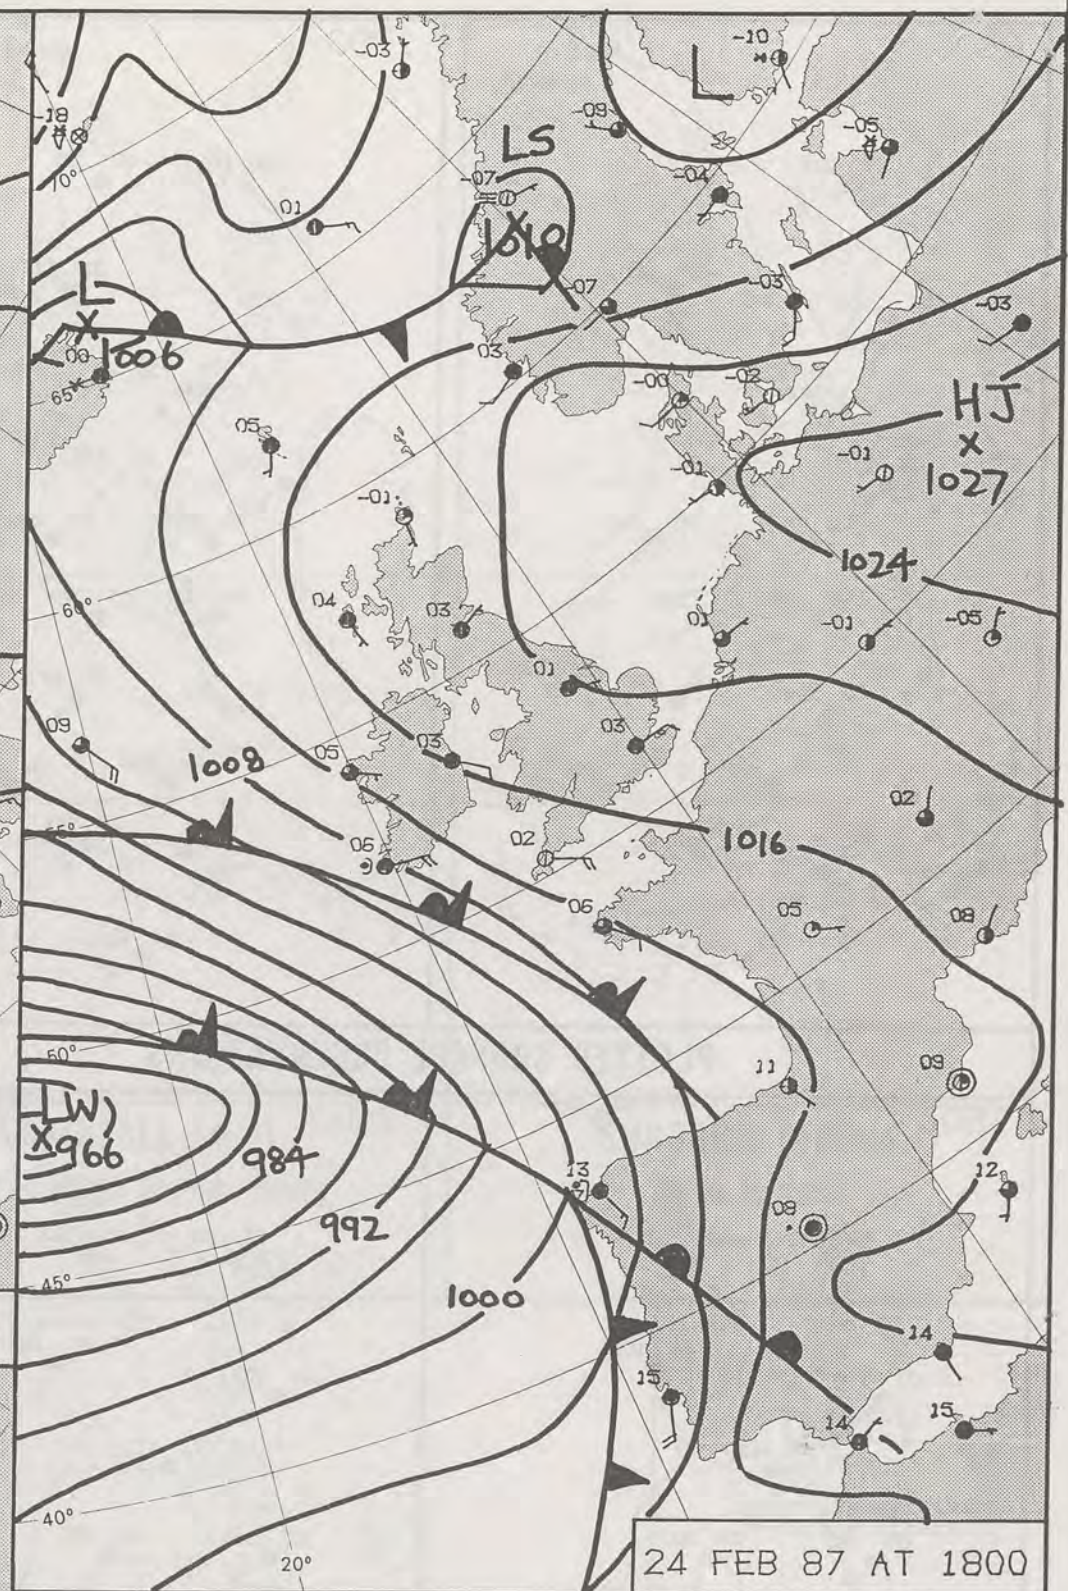 -03
-10
L
-18
-09
-05
LS
70°
-07
-04
01
1010
L
-07
-03
-03
1006
00
65
03
-00
-02
HJ
x
1027
05
-01
-01
-01
1024
60°
04
03
01
-01
-05
01
09
03
03
1008
05
02
55°
1016
06
02
06
05
08
50°
11
09
LW)
x 966
984
13
12
992
08
45°
1000
14
15
14
15
40°
20°
24 FEB 87 AT 1800